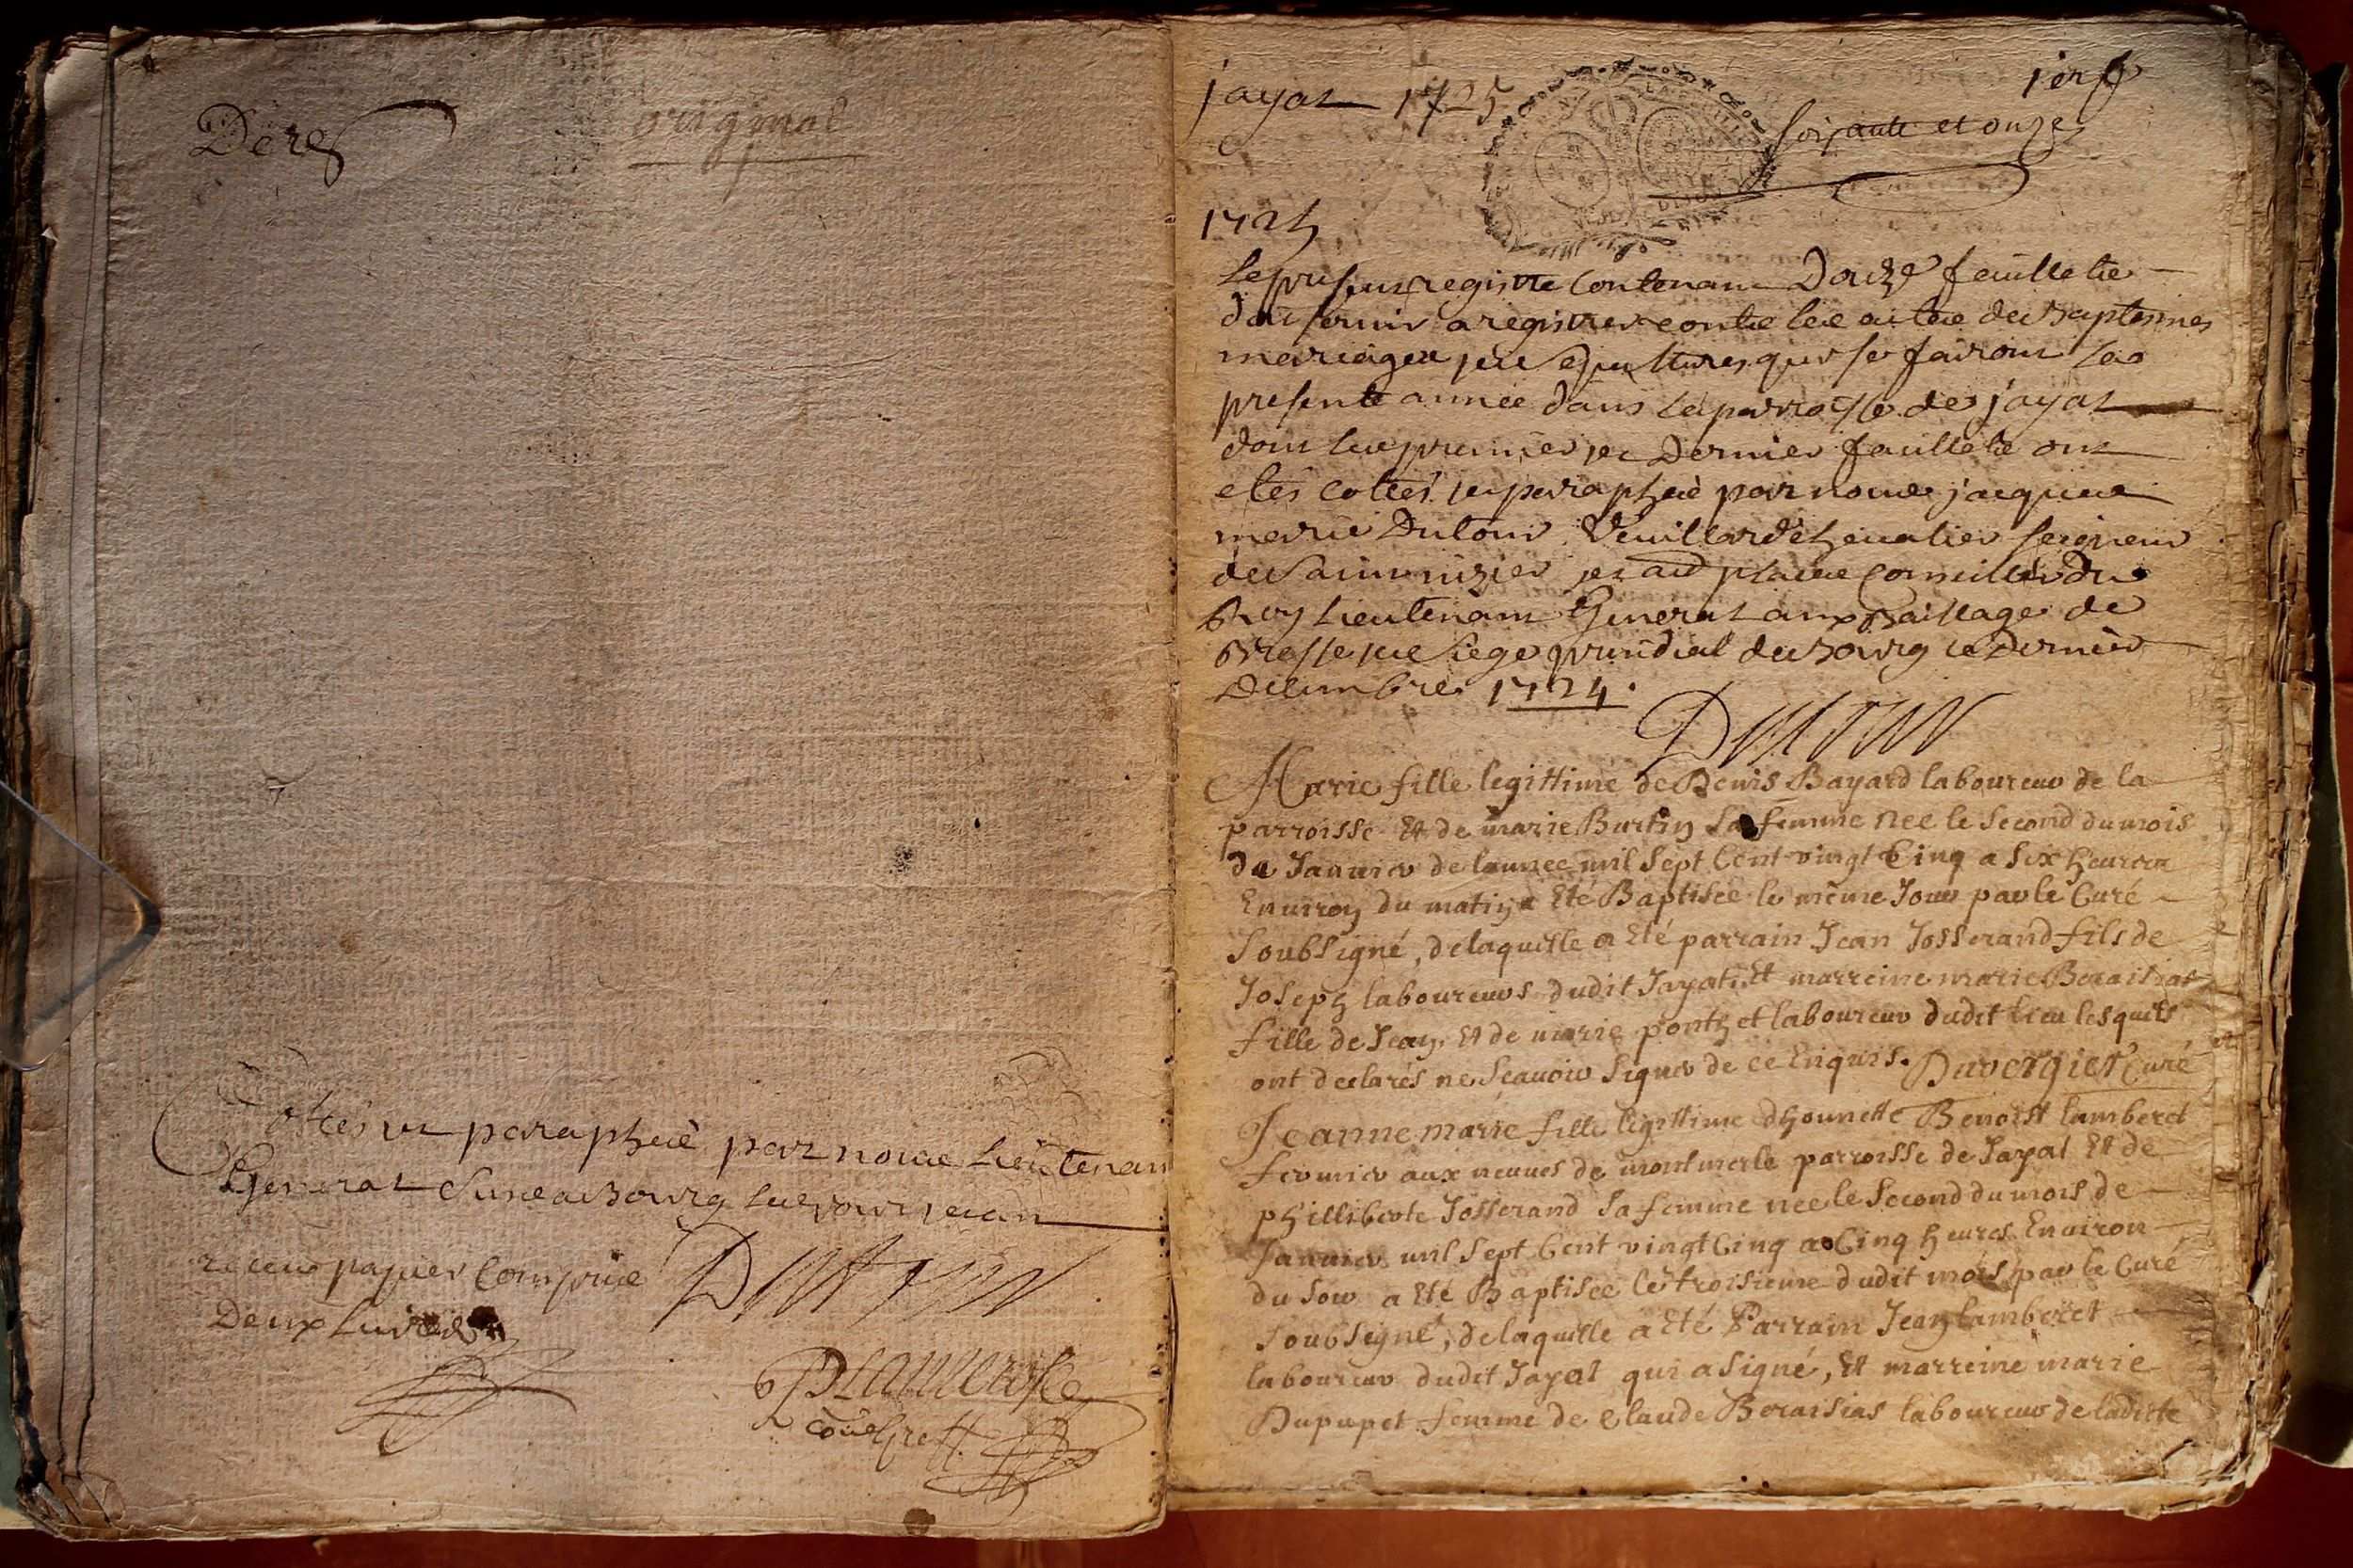 Der
original
Cottés et paraphé par nous Lieutenan
General Susd a Bourg les jour et an
receu papier compris
Deux Livres
Dutour
com Greff.
jayat 1725
1er f
soixante et onze
1725
Le present registre contenant Douze feuillets
doit servir a registrer les actes de Baptesmes
mariages et sepultures qui se fairont la
presente année dans la parroisse de jayat
dont les premier et Dernier feuillets ont
etés cottés et paraphé par nous jacques
marie Dutour Veuillard chevalier seigneur
de Saint nizier et autres places Conseiller Du
Roy Lieutenant General aux Baillage de
Bresse et Siege presidial de Bourg ce Dernier
Decembre 1724.
Dutour
Marie fille legittime de Denis Bayard laboureur de la
parroisse Et de marie Burtin Sa femme nee le Second du mois
du Januier de lannee mil Sept Cent vingt Cinq a Six heures
Enuiron du matin a Eté Baptisee le même Jour par le Curé
Soubsigné, delaquelle a Eté parrain Jean Josserand fils de
Joseph laboureurs dudit Jayat, Et marreine marie Beraisias
fille de Jean, Et de marie ponthet laboureur dudit lieu lesquels
ont declarés ne Scauoir Signer de ce Enquis. Duvergier Curé
Jeanne marie fille legittime dhounette Benoist lamberet
fermier aux neuues de montmerle parroisse de Jayat Et de
philliberte Josserand Sa femme nee le Second du mois de
Januier mil Sept Cent vingt Cinq a Cinq heures Enuiron
du Soir a Eté Baptisée le troisieme dudit mois par le Curé
Soubsigné, delaquelle a Eté Parrain Jean lamberet
laboureur dudit Jayat qui a Signé, Et marreine marie
Dupupet femme de Claude Beraisias laboureur de ladite